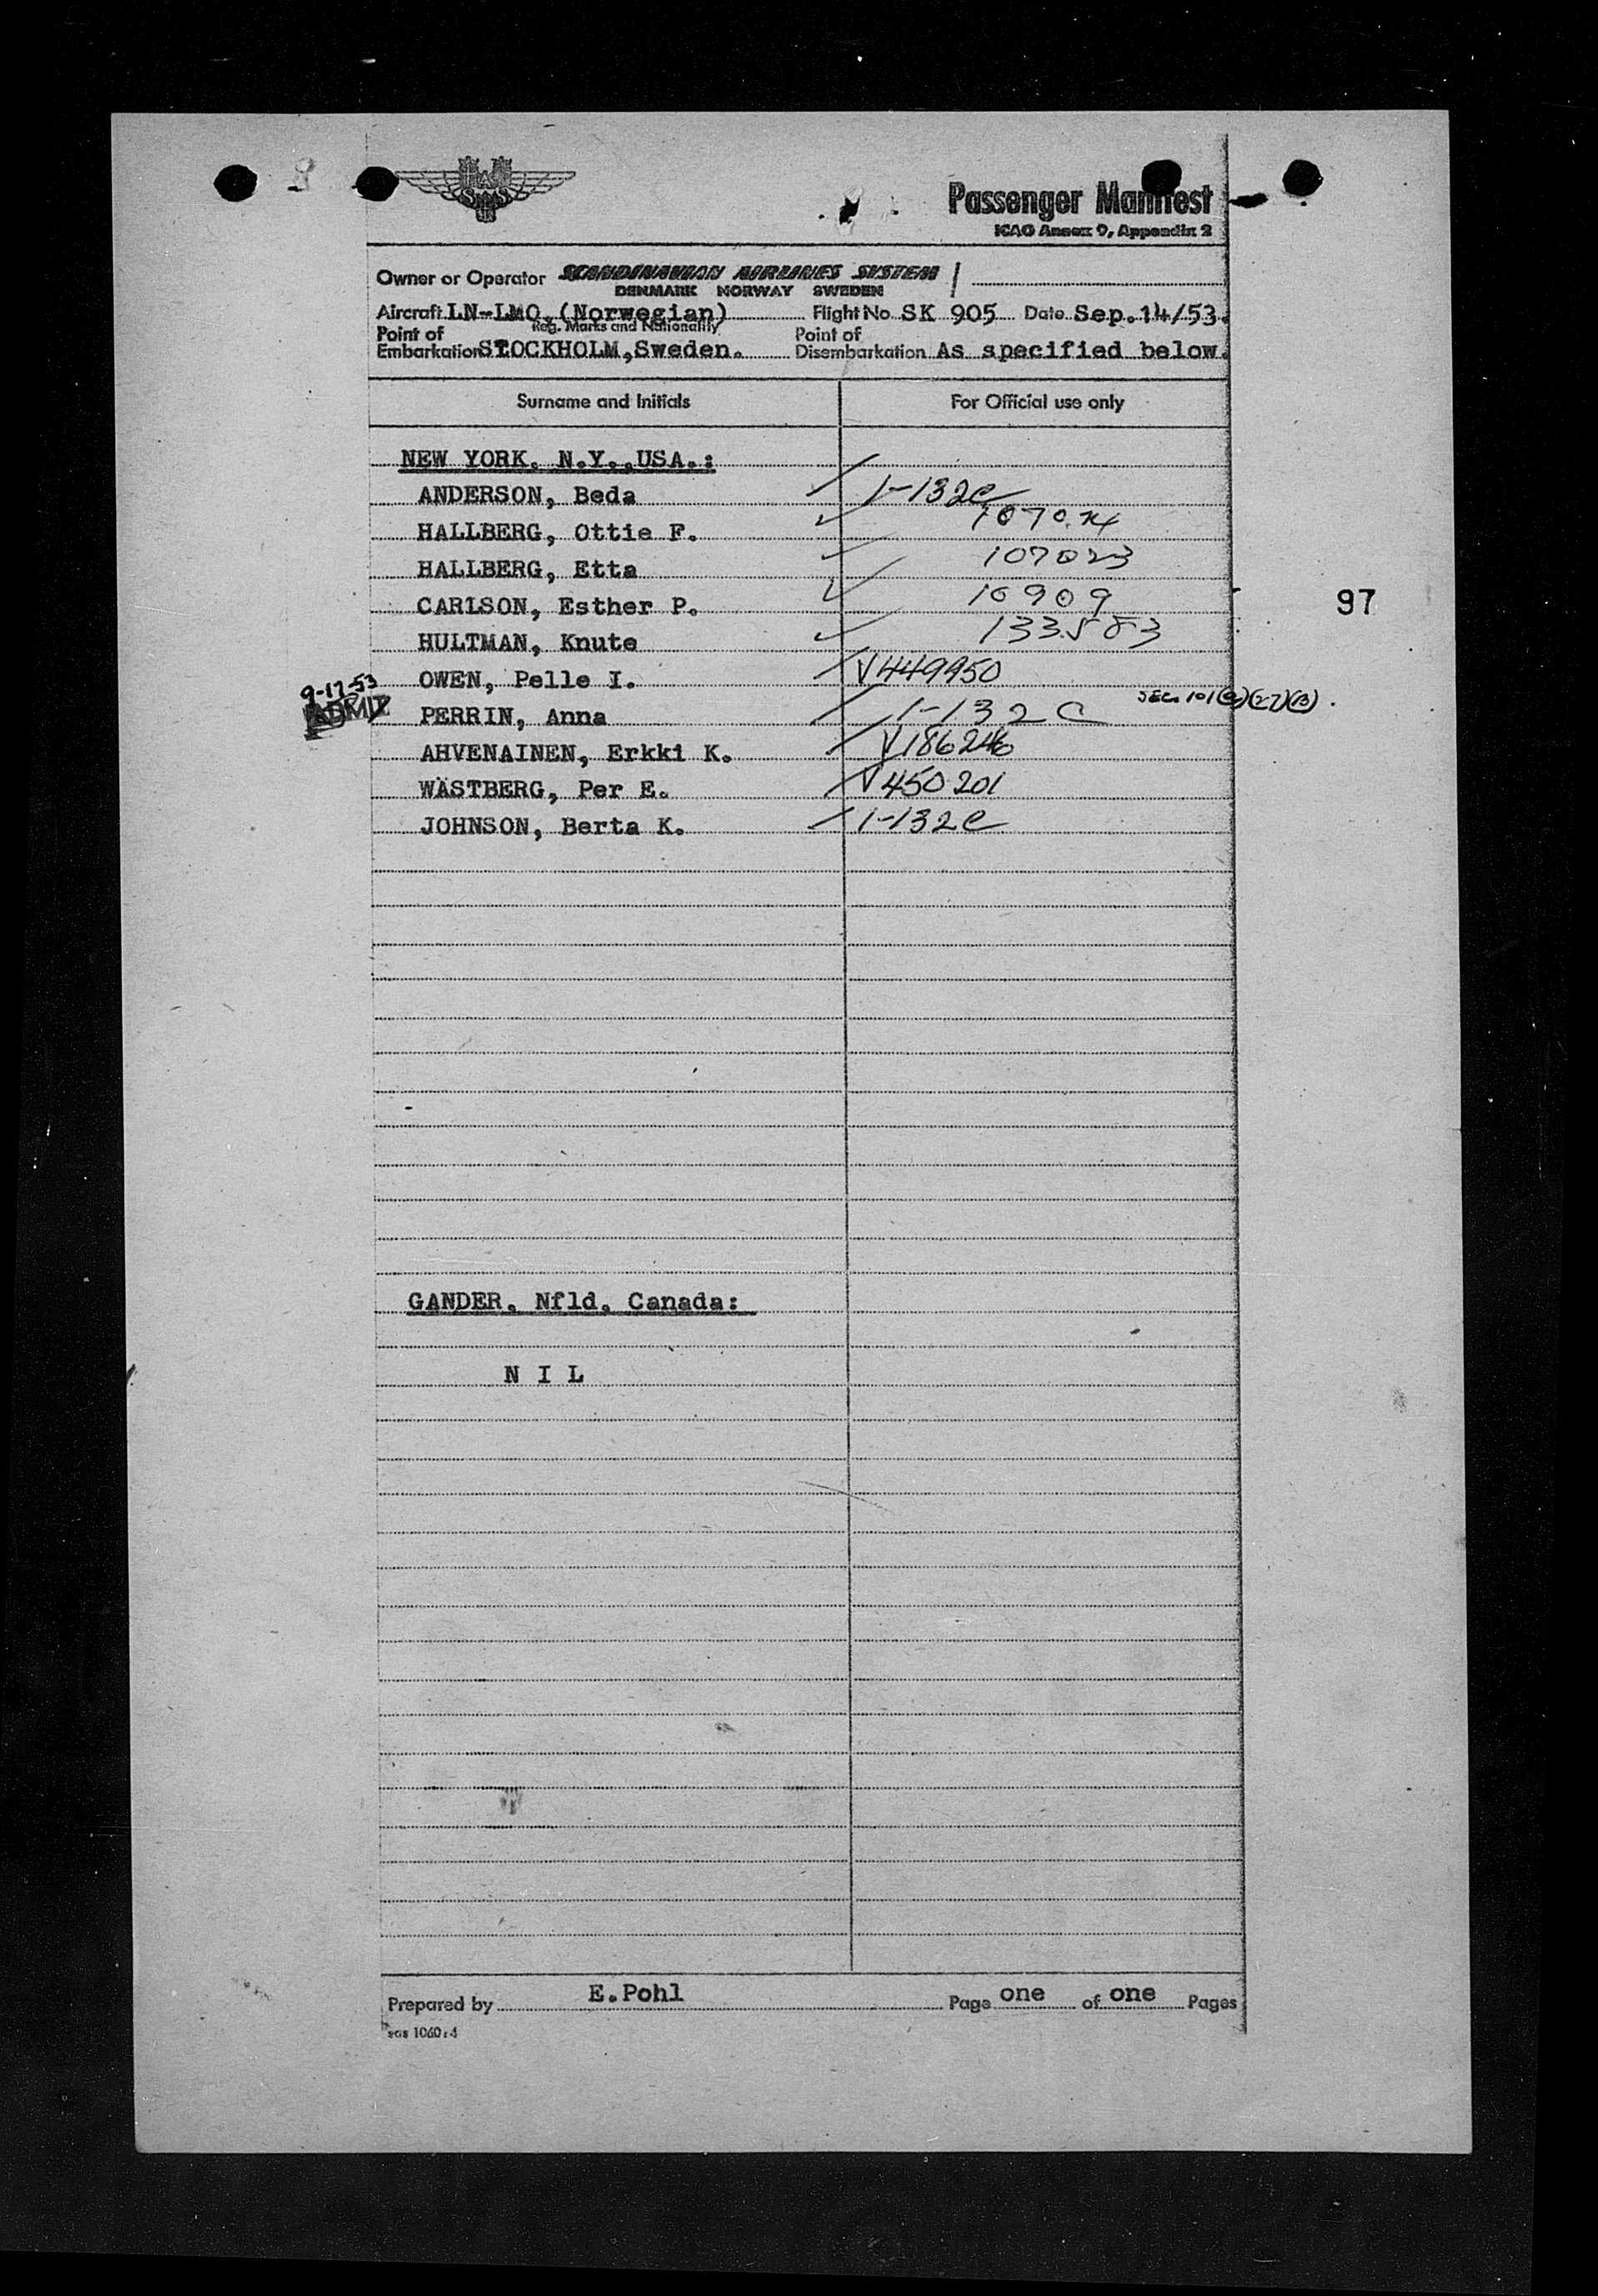 SAS
Passenger Manifest
ICAO Annex 9, Appendix 2
Owner or Operator SCANDINAVIAN AIRLINES SYSTEM
DENMARK NORWAY SWEDEN
Aircraft LN-LMO, (Norwegian) Flight No SK 905 Date Sep.14/53.
Reg. Marks and Nationality
Point of Embarkation STOCKHOLM, Sweden. Point of Disembarkation As specified below.
Surname and Initials For Official use only
NEW YORK, N.Y., USA.:
ANDERSON, Beda 1-132C
HALLBERG, Ottie F.
HALLBERG, Etta 107023
CARLSON, Esther P. 10909 97
HULTMAN, Knute 133583
OWEN, Pelle I. V449950
9-17-53
ADMIT PERRIN, Anna 1-132C SEC. 101(a)(27)(B).
AHVENAINEN, Erkki K. V186246
WÄSTBERG, Per E. V450201
JOHNSON, Berta K. 1-132C
GANDER, Nfld, Canada:
N I L
Prepared by E.Pohl Page one of one Pages
1060:4